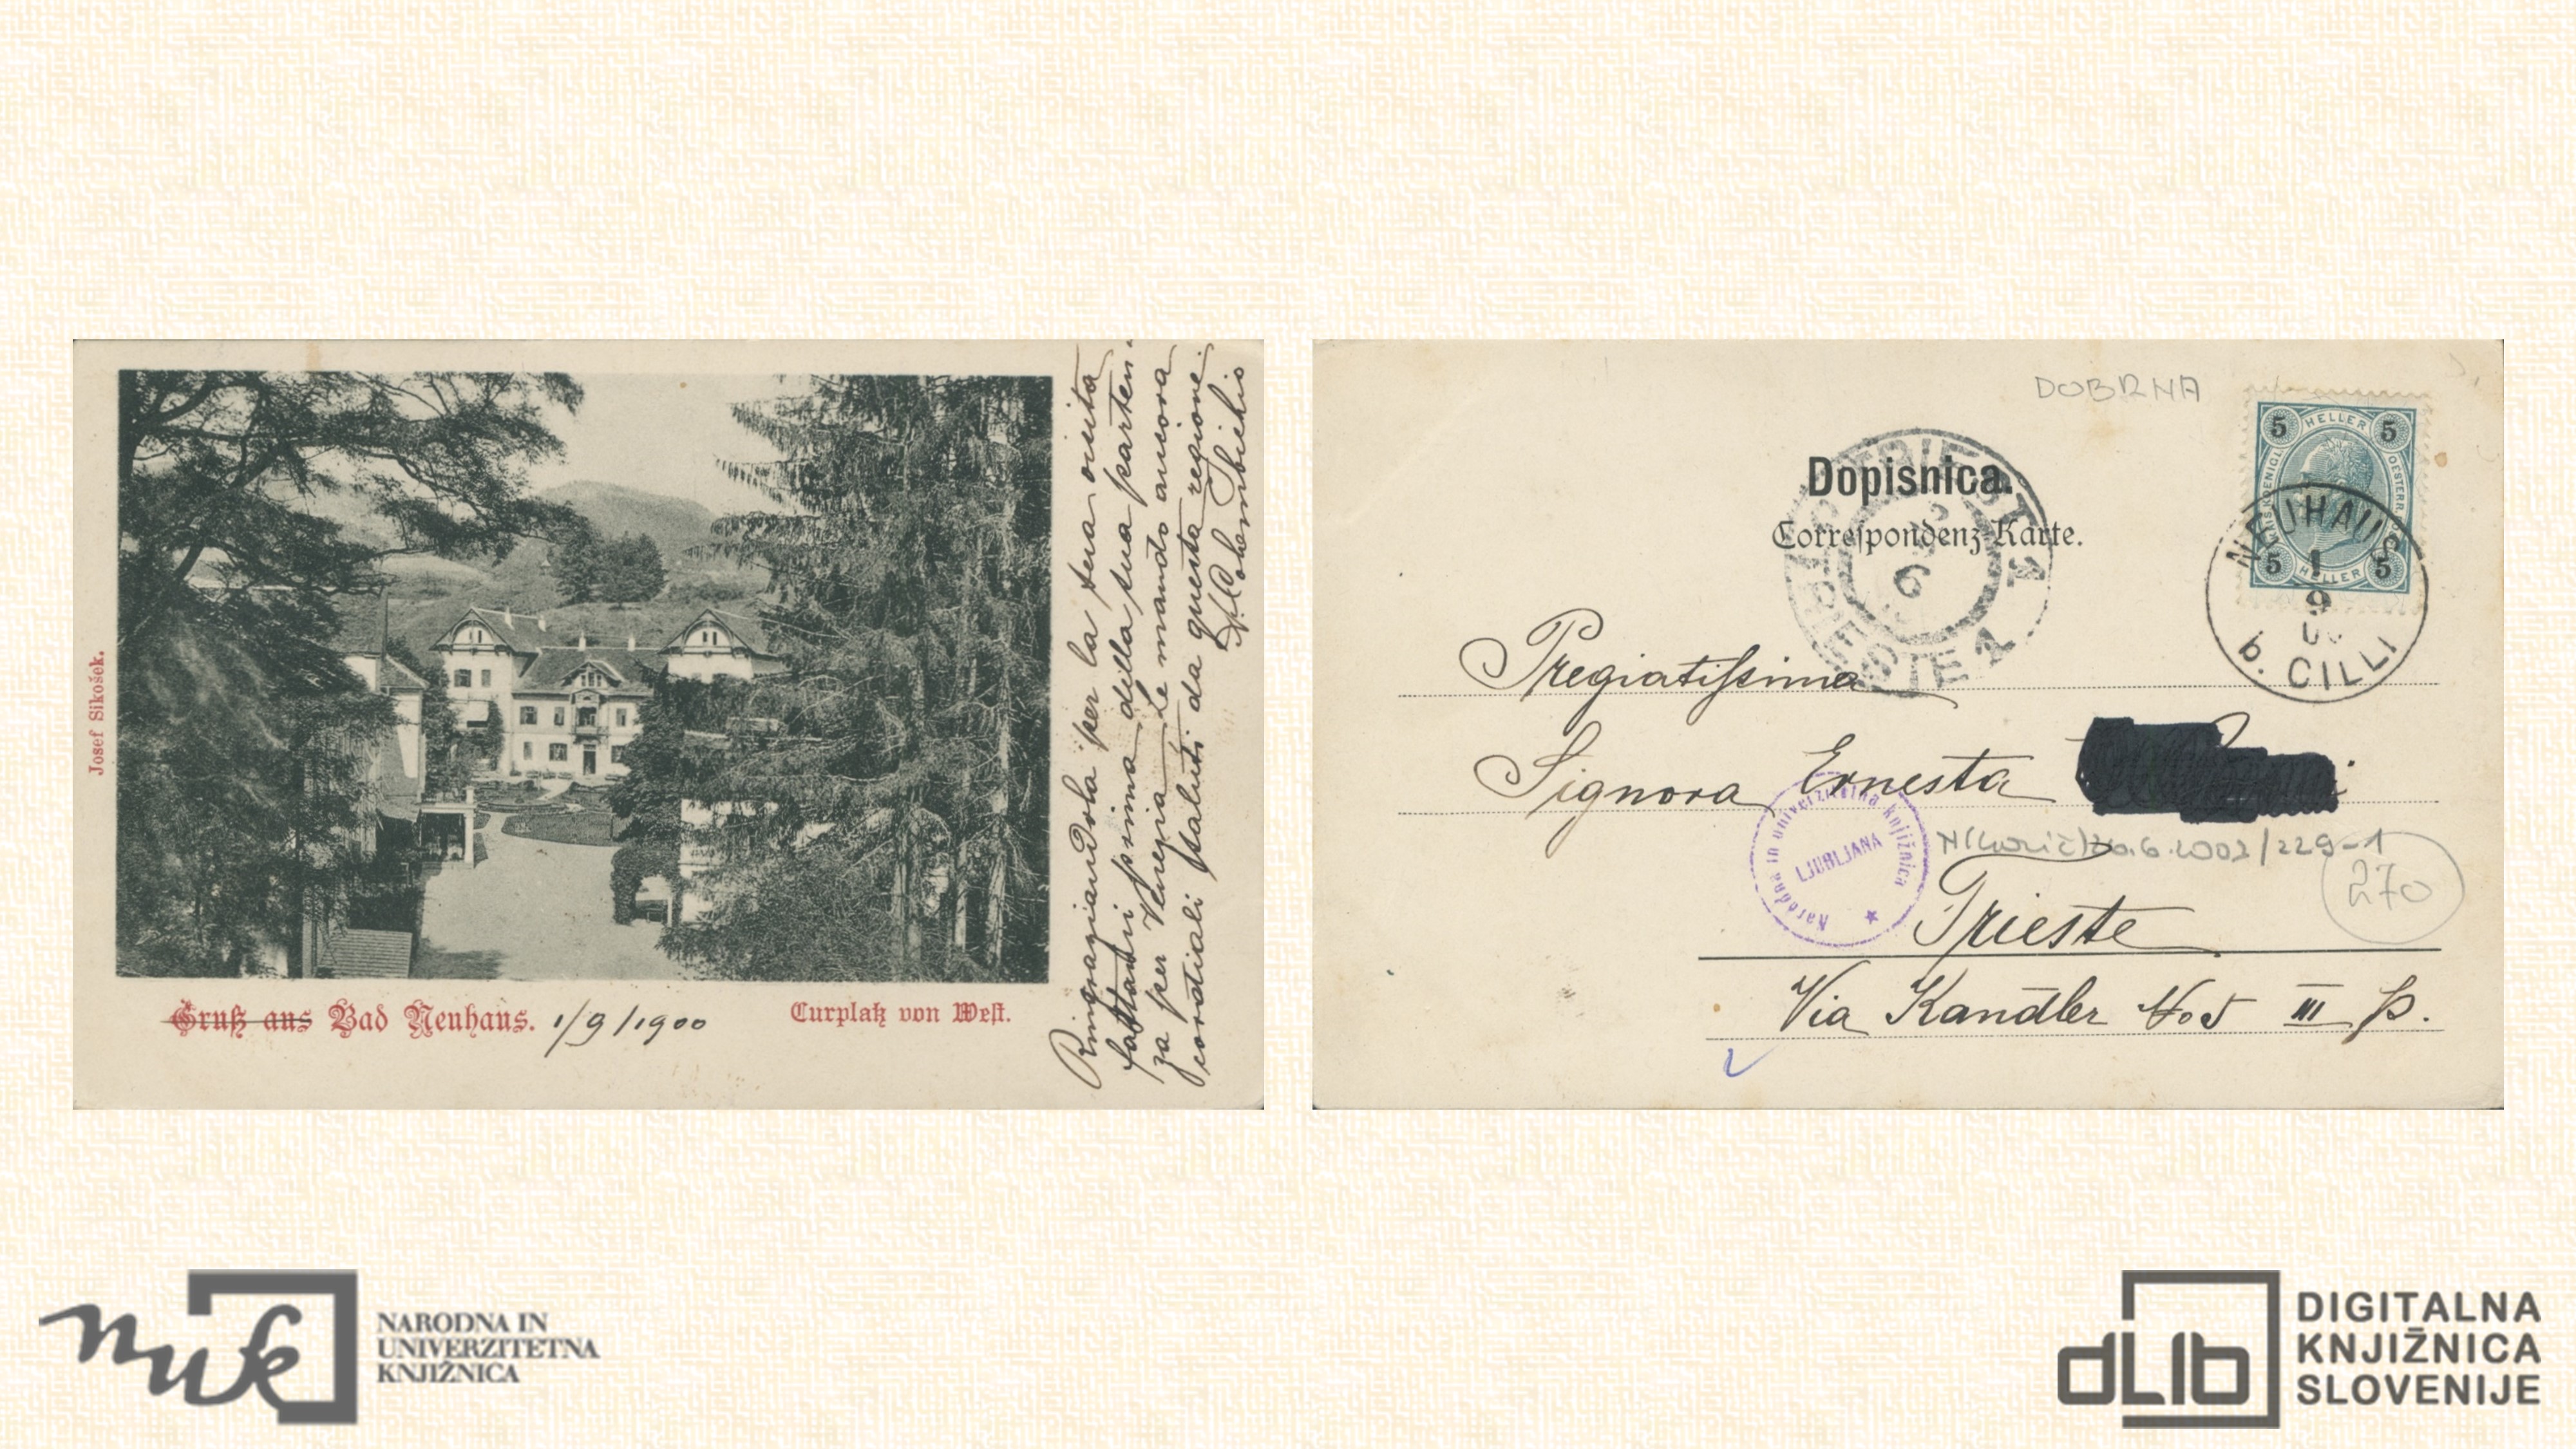 Josef Sikošek.
Gruß aus Bad Neuhaus. 1/9/1900
Curplatz von West.
Ringraziandola per la sua visita
fattami prima della sua parten-
za per Venezia Le mando ancora
cordiali saluti da questa regione
DOBRNA
Dopisnica.
Correspondenz-Karte.
TRIEST 1
TRIESTE 1
6
5 HELLER 5
5 HELLER 5
NEUHAUS
1
9
b. CILLI
Pregiatissima
Signora Ernesta
Narodna in univerzitetna knjižnica
LJUBLJANA
6.2002/229-1
270
Trieste
Via Kandler No 5 III p.
nuk
NARODNA IN
UNIVERZITETNA
KNJIŽNICA
dLib
DIGITALNA
KNJIŽNICA
SLOVENIJE